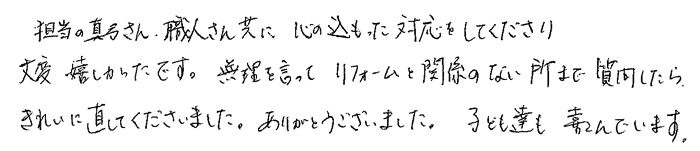 担当の真弓さん、職人さん共に 心の込もった対応をしてくださり
大変 嬉しかったです。無理を言って リフォームと関係のない所まで 質問したら、
きれいに直してくださいました。ありがとうございました。 子ども達も 喜んでいます。